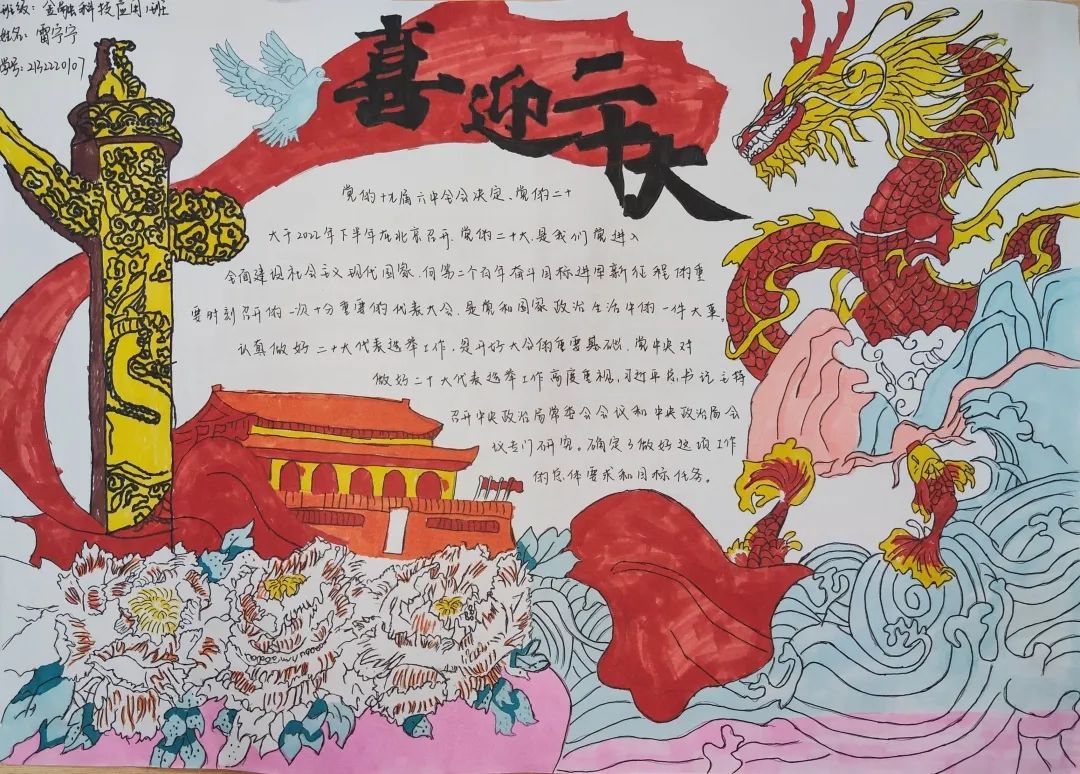 班级：金融科技应用1班
姓名：雷宁宁
学号：2132220107
喜迎二十大
党的十九届六中全会决定、党的二十
大于2022年下半年在北京召开.党的二十大.是我们党进入
全面建设社会主义现代国家、向第二个百年奋斗目标进军新征程的重
要时刻召开的一次十分重要的代表大会.是党和国家政治生活中的一件大事。
认真做好二十大代表选举工作.是开好大会的重要基础.党中央对
做好二十大代表选举工作高度重视，习近平总书记主持
召开中央政治局常委会会议和中央政治局会
议专门研究。确定了做好这项工作
的总体要求和目标任务。